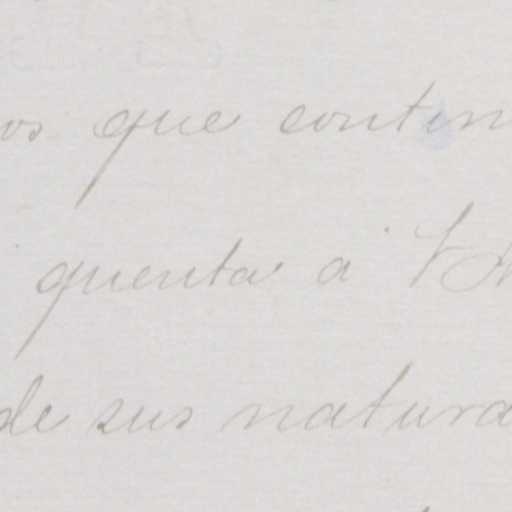 os que contin
quenta á
de sus natura